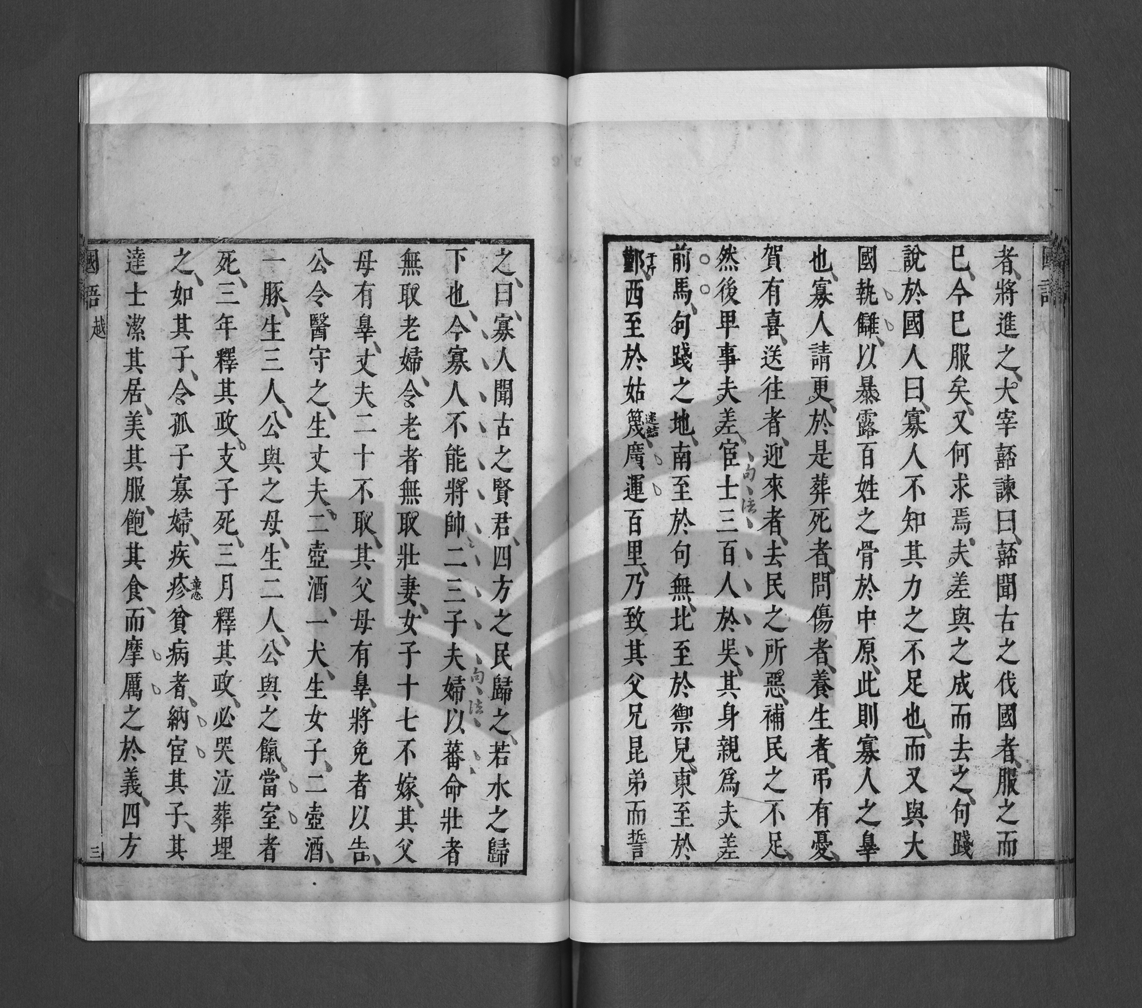 者將進之大宰嚭諫曰嚭聞古之伐國者服之而
已今已服矣又何求焉夫差與之成而去之句踐
說於國人曰寡人不知其力之不足也而又與大
國執讎以暴露百姓之骨於中原此則寡人之辠
也寡人請更於是葬死者問傷者養生者弔有憂
賀有喜送往者迎來者去民之所惡補民之不足
然後卑事夫差宦士三百人於吳其身親爲夫差
句法
前馬句踐之地南至於句無北至於禦兒東至於
鄞西至於姑篾廣運百里乃致其父兄昆弟而誓
之曰寡人聞古之賢君四方之民歸之若水之歸
句法
下也今寡人不能將帥二三子夫婦以蕃命壯者
無取老婦令老者無取壯妻女子十七不嫁其父
母有辠丈夫二十不取其父母有辠將免者以告
公令醫守之生丈夫二壺酒一犬生女子二壺酒
一豚生三人公與之母生二人公與之餼當室者
死三年釋其政支子死三月釋其政必哭泣葬埋
之如其子令孤子寡婦疾疹貧病者納宦其子其
達士潔其居美其服飽其食而摩厲之於義四方
國語 越 三